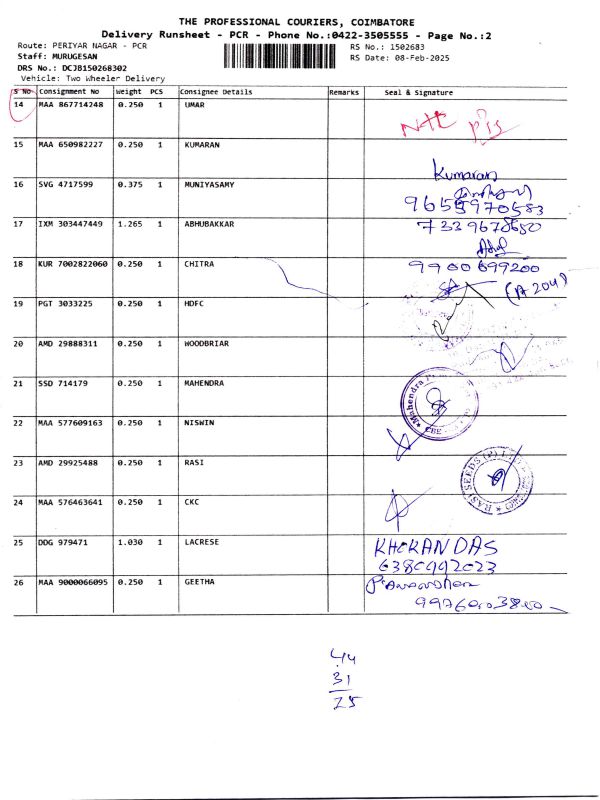 THE PROFESSIONAL COURIERS, COIMBATORE
Delivery Runsheet - PCR - Phone No.:0422-3505555 - Page No.:2
Route: PERIYAR NAGAR - PCR
RS No.: 1502683
Staff: MURUGESAN
RS Date: 08-Feb-2025
DRS No.: DCJB150268302
Vehicle: Two Wheeler Delivery
S No Consignment No Weight PCS Consignee Details Remarks Seal & Signature
14 MAA 867714248 0.250 1 UMAR
15 MAA 650982227 0.250 1 KUMARAN
Kumaran
16 SVG 4717599 0.375 1 MUNIYASAMY
9655970583
17 IXM 303447449 1.265 1 ABHUBAKKAR
7339678650
18 KUR 7002822060 0.250 1 CHITRA
9900699200
(A 204)
19 PGT 3033225 0.250 1 HDFC
20 AMD 29888311 0.250 1 WOODBRIAR
21 SSD 714179 0.250 1 MAHENDRA
Mahendra
CBE
22 MAA 577609163 0.250 1 NISWIN
23 AMD 29925488 0.250 1 RASI
RASI SEEDS (P)
24 MAA 576463641 0.250 1 CKC
25 DDG 979471 1.030 1 LACRESE
26 MAA 9000066095 0.250 1 GEETHA
44
31